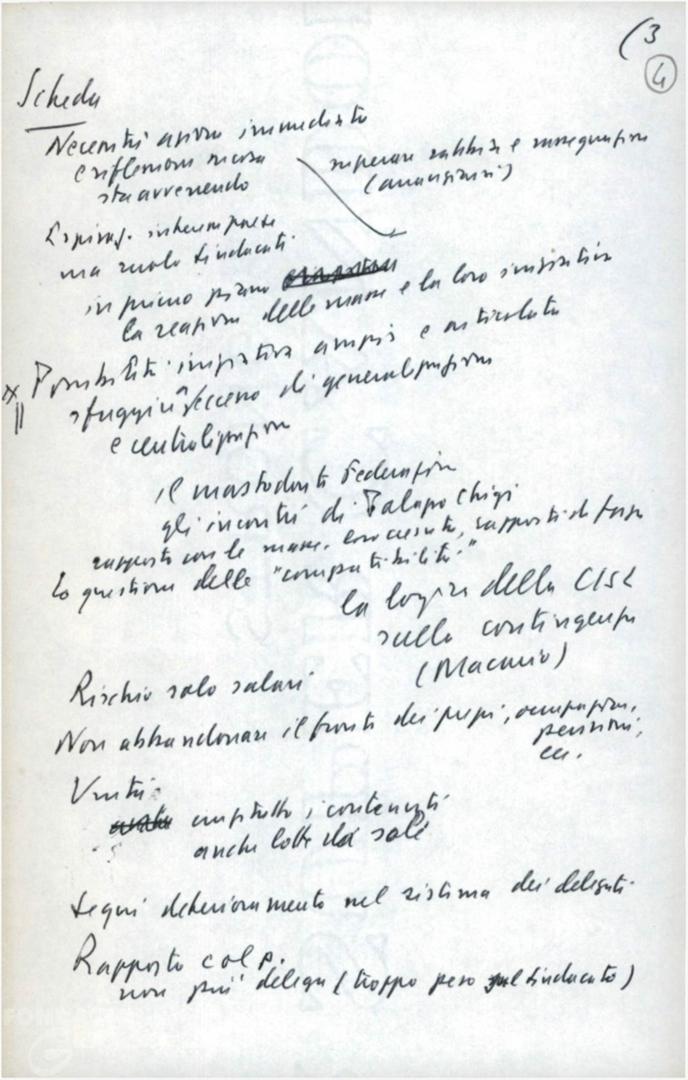 (3
4
Scheda
Necessità azione immediata
e riflessioni su cosa
sta avvenendo
superare rabbia e rassegnazione
ma ruolo sindacati
in primo piano
la reazione delle masse e la loro iniziativa
Possibilità iniziativa ampia e articolata
sfuggire eccesso di generalizzazioni
e centralizzazione
il mastodonte Federazione
gli incontri di Palazzo Chigi
rapporto con le masse, rapporti di forza
La questione delle "compatibilità"
la logica della CISL
sulla contingenza
(Macario)
Rischio solo salari
Non abbandonare il fronte dei prezzi, occupazione,
pensioni,
ecc.
Unità:
anzitutto i contenuti
anche lotte da soli
Segni deterioramento nel sistema dei delegati
Rapporto col p.
non più delega (troppo peso sul sindacato)